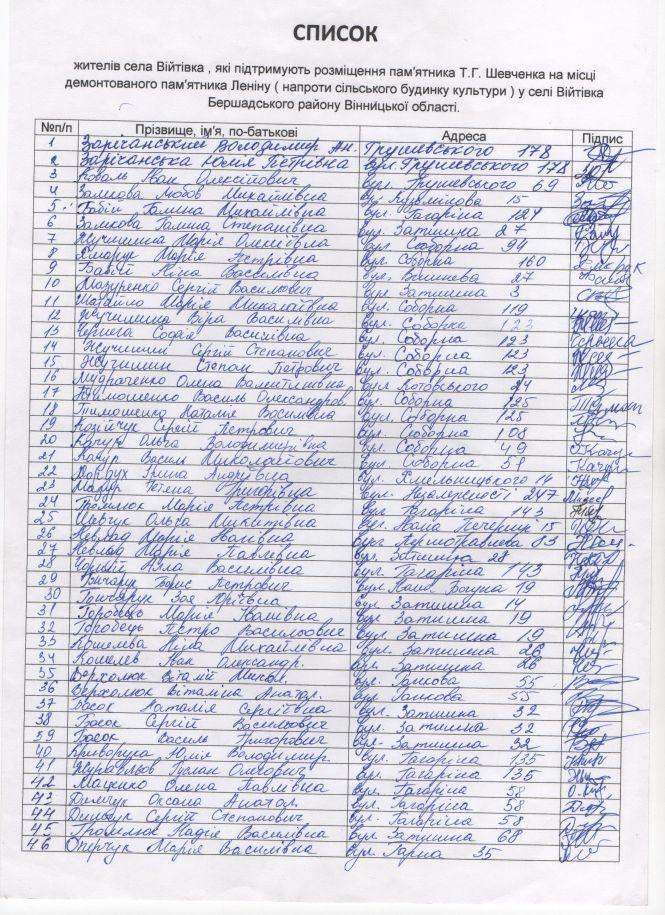 СПИСОК
жителів села Війтівка , які підтримують розміщення пам'ятника Т.Г. Шевченка на місці
демонтованого пам'ятника Леніну ( напроти сільського будинку культури ) у селі Війтівка
Бершадського району Вінницької області.
№п/п Прізвище, ім'я, по-батькові Адреса Підпис
1 Зарічанський Володимир Ан. Грушевського 178
2 Зарічанська Юлія Петрівна вул. Грушевського 178
3 Коваль Іван Олексійович вул. Грушевського 69
4 Замкова Любов Михайлівна 15
5 Бабій Галина Михайлівна вул. Гагаріна 124
6 Замкова Галина Степанівна вул. Затишна 27
7 Жучишина Марія Олексіївна вул. Соборна 94
8 Хмарук Марія Петрівна вул. Соборна 160
9 Бабій Ніна Василівна вул. Вишнева 27
10 Мазуренко Сергій Васильович вул Затишна 3
11 Марія Миколаївна вул. Соборна 119
12 Жучишина Віра Василівна вул. Соборна 123
13 Чернега Софія Василівна вул. Соборна 123
14 Жучишин Сергій Степанович вул. Соборна 123
15 Жучишин Степан Петрович вул. Соборна 123
16 Мудраченко Олена Валентинівна вул Котовського 24
17 Тимошенко Василь Олександров. вул. Соборна 125
18 Тимошенко Наталія Василівна вул. Соборна 125
19 Сергій Петрович вул. Соборна 108
20 Качур Ольга Володимирівна вул. Соборна 49
21 Качур Василь Миколайович вул Соборна 58
22 Інна Андріївна вул. Хмельницького 14
23 Мазур Тетяна Григорівна вул. Незалежності 247
24 Марія Петрівна вул Гагаріна 143
25 Шевчук Ольга Микитівна вул. 15
26 Марія Іванівна вул. 83
27 Марія Павлівна вул. Затишна 28
28 Чорній Алла Василівна вул. Гагаріна 143
29 Гончарук Борис Петрович вул. Івана Богуна 19
30 Гончарук Зоя Юріївна вул. Затишна 14
31 Горобець Марія Іванівна вул. Затишна 19
32 Горобець Петро Васильович вул. Затишна 19
33 Кошелєва Ніна Михайлівна вул. Затишна 26
34 Кошелєв Іван Олександр. вул. Затишна 26
35 Верхолюк Віталій Микол. вул. Ганкова 55
36 Верхолюк Віталіна Анатол. вул. Ганкова 55
37 Басок Наталія Сергіївна вул. Затишна 32
38 Басок Сергій Васильович вул. Затишна 32
39 Басок Василь Григорович вул. Затишна 32
40 Криворука Юлія Володимир. вул. Гагаріна 135
41 Журавльов Руслан Олегович вул. Гагаріна 135
42 Маценко Олена Павлівна вул. Гагаріна 58
43 Димчук Оксана Анатол. вул. Гагаріна 58
44 Сергій Степанович вул. Гагаріна 58
45 Громлюк Надія Василівна вул. Затишна 68
46 Оперчук Марія Василівна вул. Гарна 35